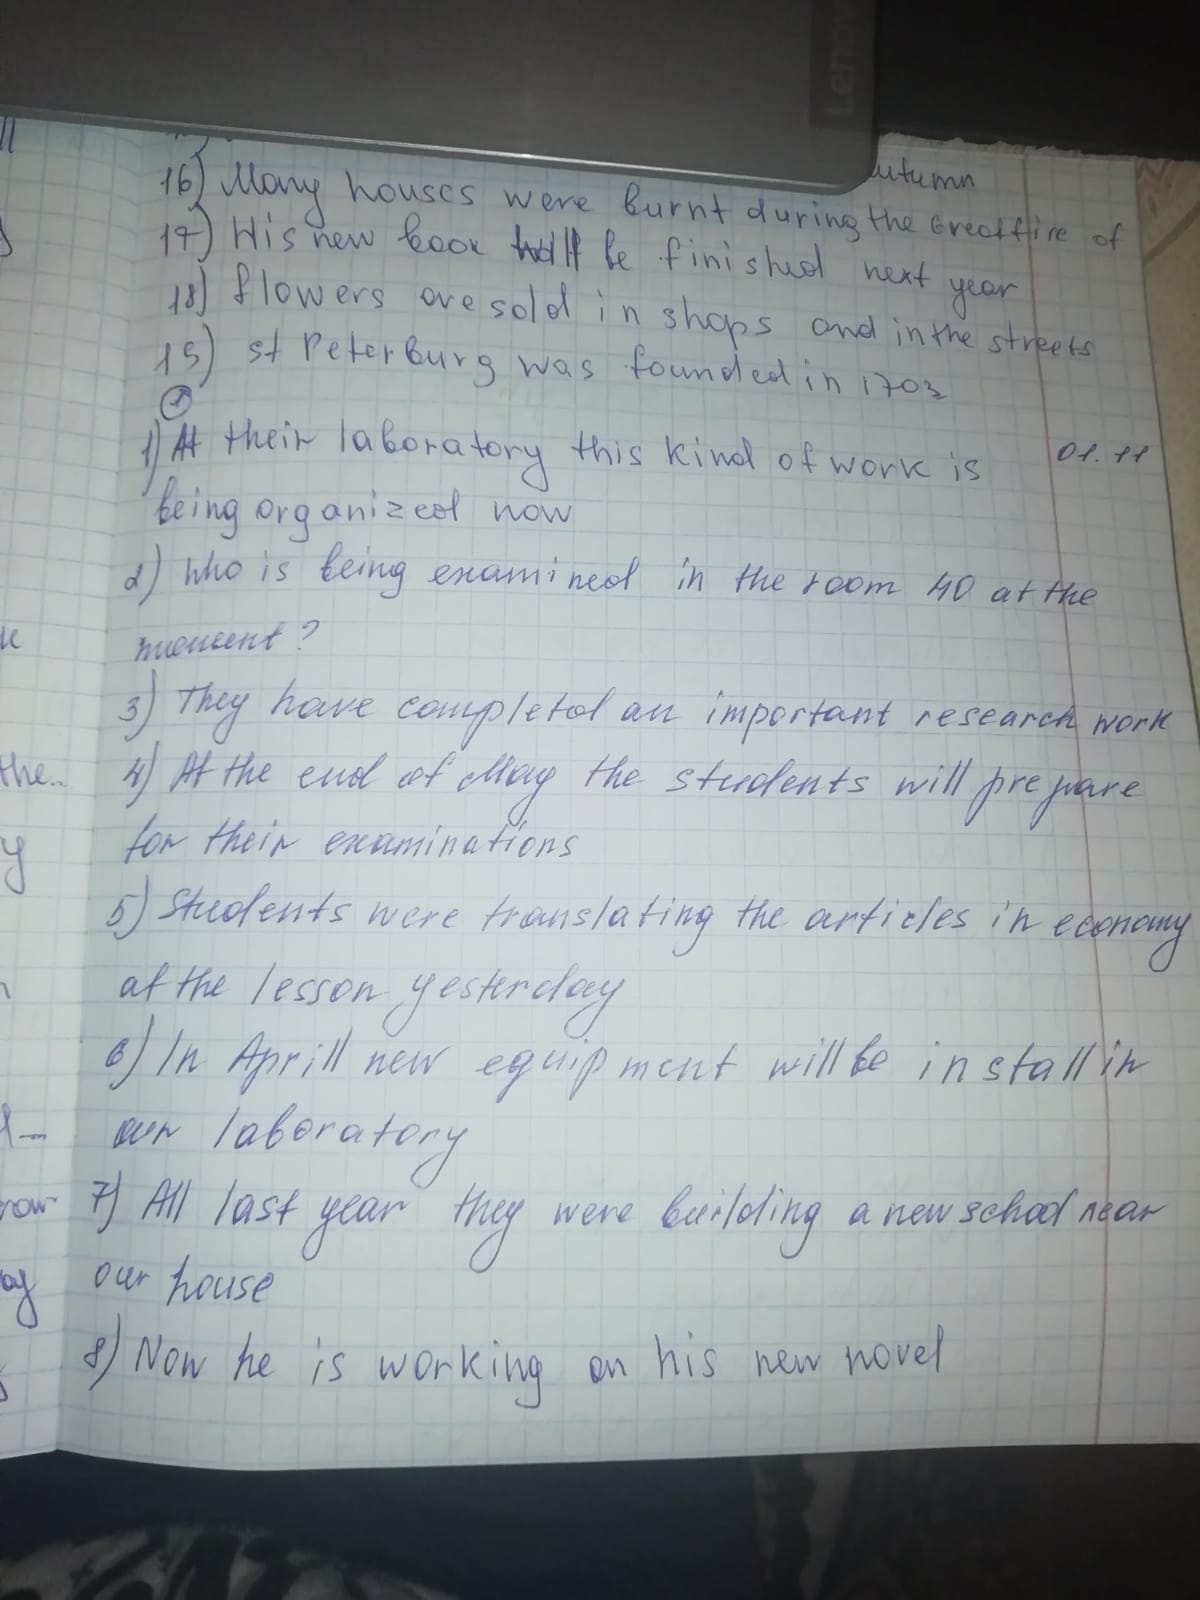 Lenovo
autumn
16) Many houses were burnt during the Great fire of
17) His new book will be finished next year
18) flowers are sold in shops and in the streets
19) st Peterburg was founded in 1703
1) At their laboratory this kind of work is
01.11
being organized now
2) Who is being examined in the room 40 at the
moment?
3) They have completed an important research work
4) At the end of May the students will prepare
for their examinations
5) Students were translating the articles in economy
at the lesson yesterday
6) In Aprill new equipment will be install in
our laboratory
7) All last year they were building a new school near
our house
8) Now he is working on his new novel
the..
y